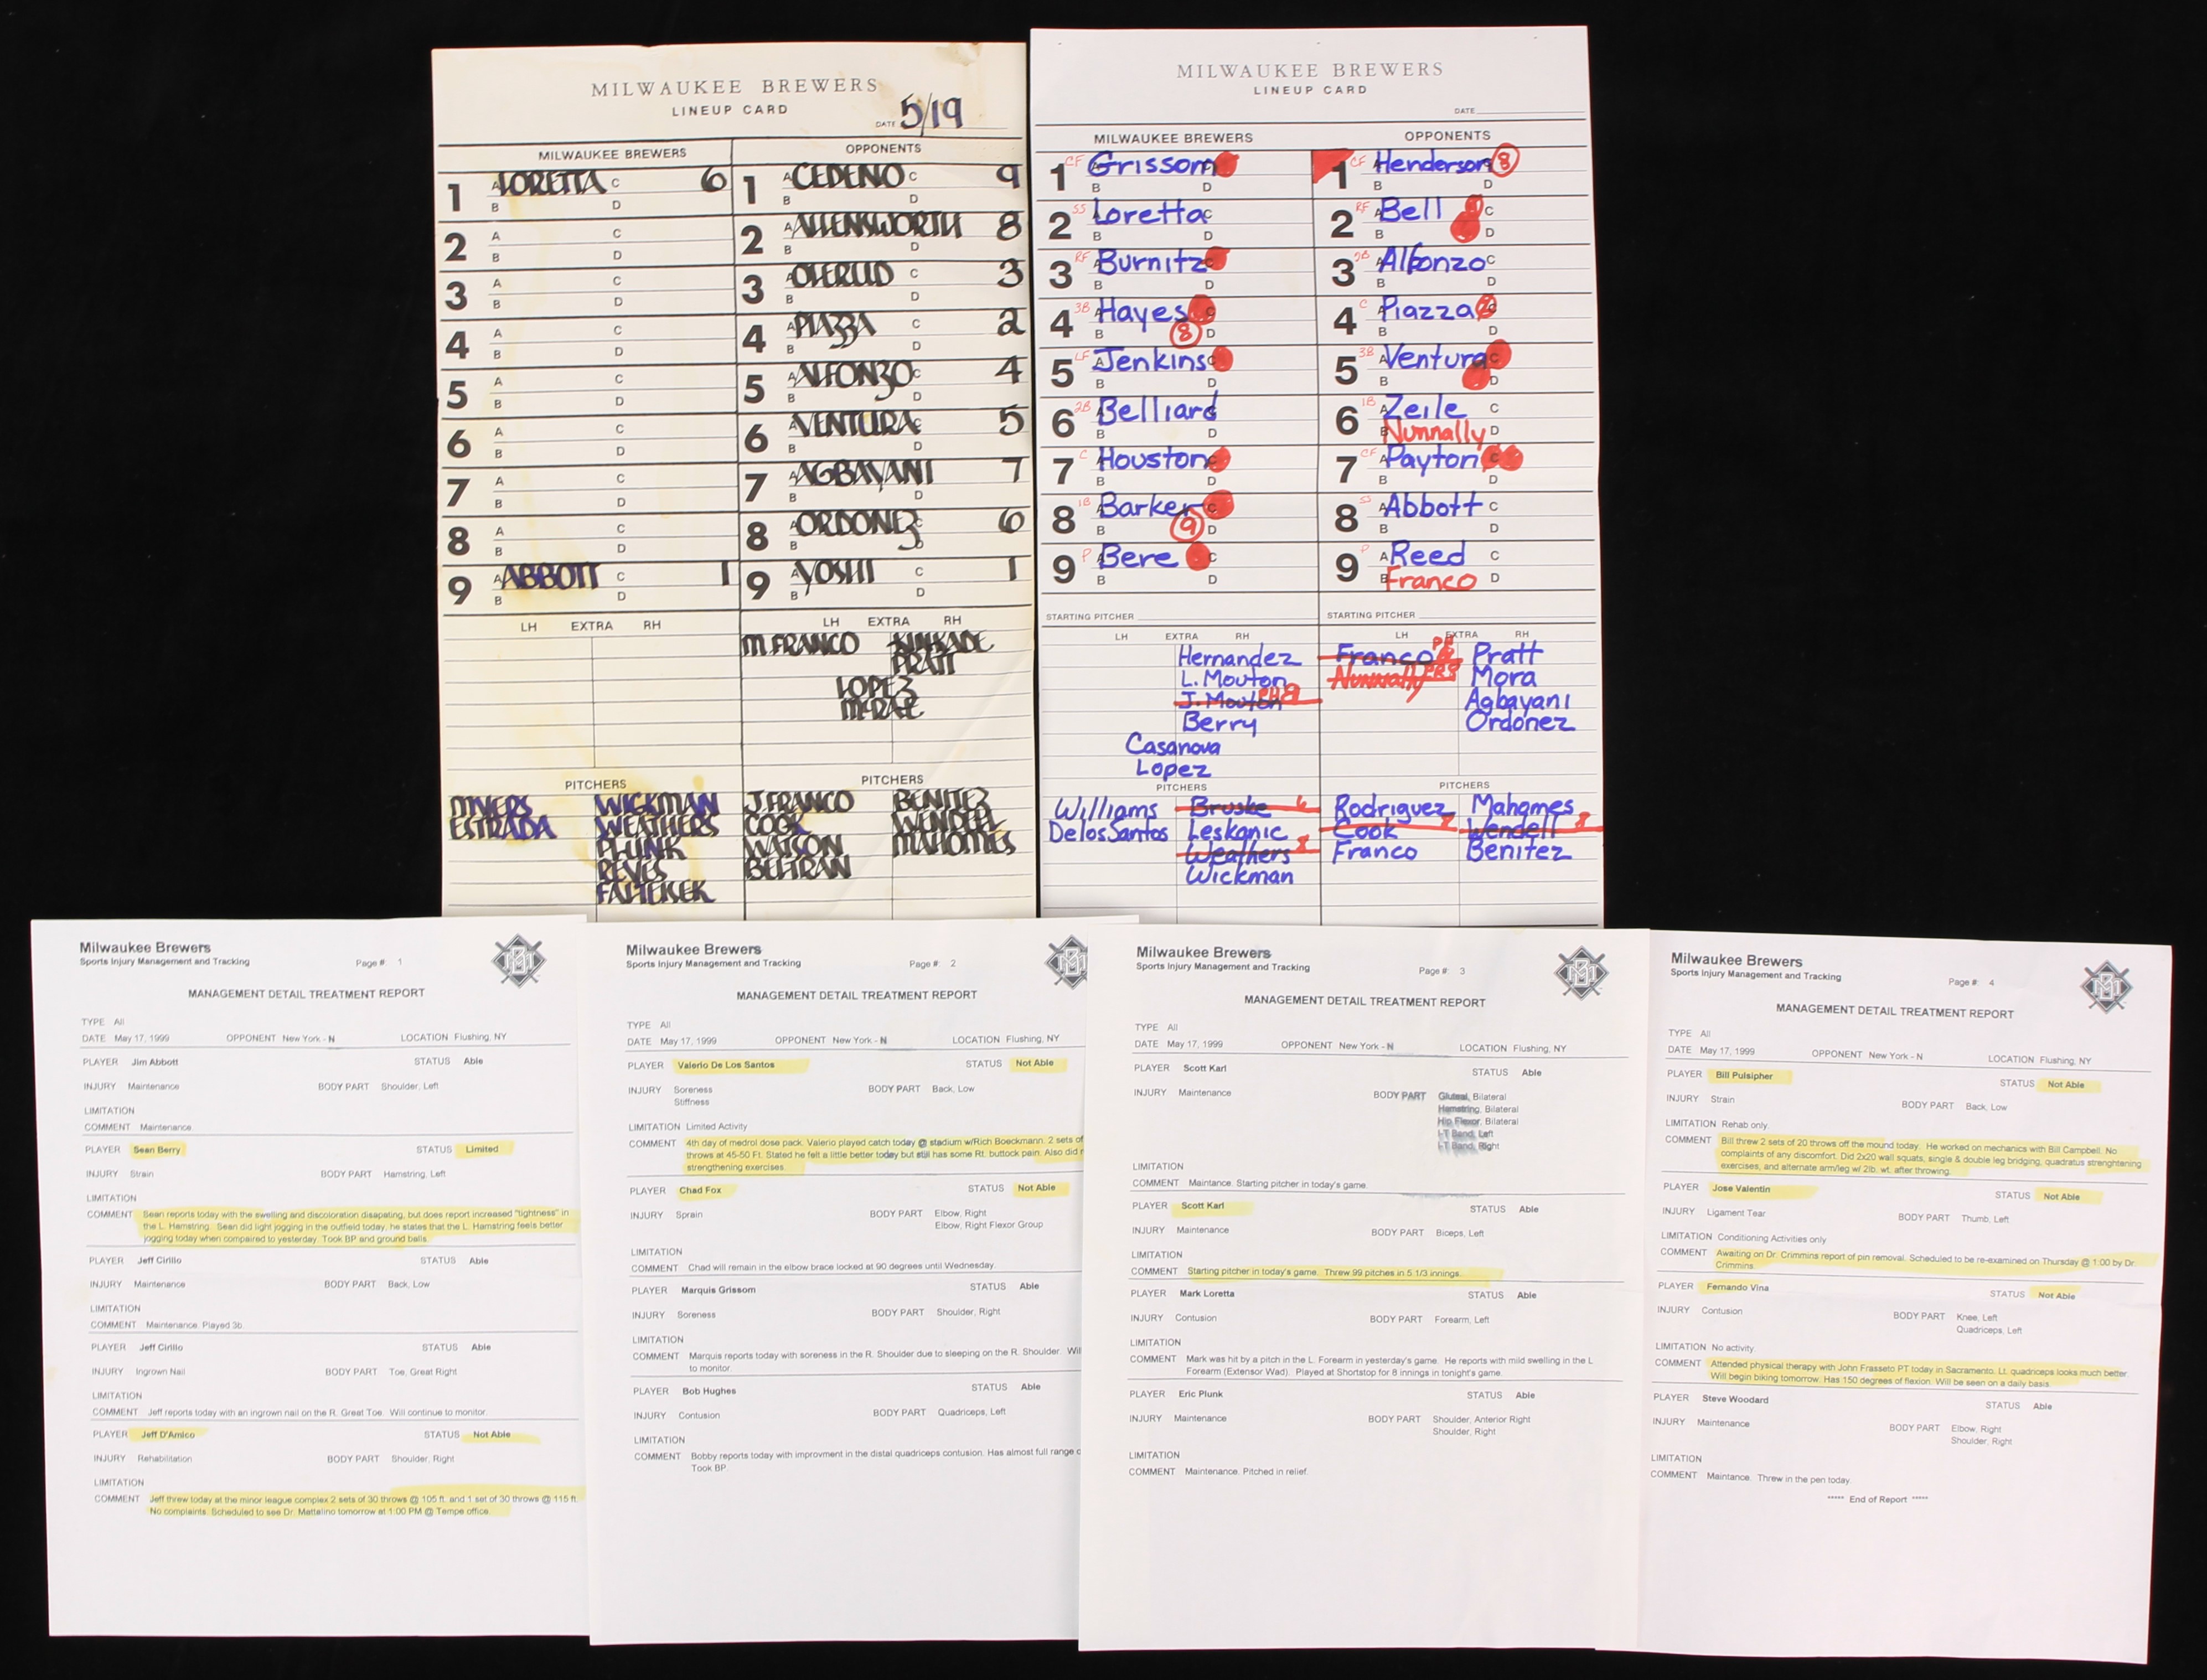 MILWAUKEE BREWERS
LINEUP CARD
DATE 5/19
MILWAUKEE BREWERS OPPONENTS
1 A LORETTA C 6 1 A CEDENO C 9
B D B D
2 A C 2 A ALLENSWORTH 8
B D B D
3 A C 3 A OLERUD C 3
B D B D
4 A C 4 A PIAZZA C 2
B D B D
5 A C 5 A ALFONZO C 4
B D B D
6 A C 6 A VENTURA C 5
B D B D
7 A C 7 A AGBAYANI 7
B D B D
8 A C 8 A ORDONEZ C 6
B D B D
9 A ABBOTT C 1 9 A YOSHI C 1
B D B D
LH EXTRA RH LH EXTRA RH
M. FRANCO KINKADE
PRATT
LOPEZ
MCRAE
PITCHERS PITCHERS
MYERS WICKMAN J. FRANCO BENITEZ
ESTRADA WEATHERS COOK WENDELL
PLUNK WATSON MAHOMES
REYES BELTRAN
FALTEISEK
MILWAUKEE BREWERS
LINEUP CARD
DATE
MILWAUKEE BREWERS OPPONENTS
1 CF A Grissom 1 CF A Henderson 8
B D B D
2 SS A Loretta C 2 RF A Bell C
B D B D
3 RF A Burnitz 3 2B A Alfonzo C
B D B D
4 3B A Hayes C 4 C A Piazza
B 8 D B D
5 LF A Jenkins C 5 3B A Ventura C
B D B D
6 2B A Belliard 6 1B A Zeile C
B D B Nunnally D
7 C A Houston C 7 CF A Payton C
B D B D
8 1B A Barker C 8 SS A Abbott C
B 9 D B D
9 P A Bere C 9 P A Reed C
B D B Franco D
STARTING PITCHER STARTING PITCHER
LH EXTRA RH LH EXTRA RH
Hernandez Franco PH Pratt
L. Mouton Nunnally Mora
J. Mouton PH Agbayani
Berry Ordonez
Casanova
Lopez
PITCHERS PITCHERS
Williams Bruske 6 Rodriguez Mahomes
DelosSantos Leskanic Cook Wendell 8
Weathers 8 Franco Benitez
Wickman
Milwaukee Brewers
Sports Injury Management and Tracking Page #: 1
MANAGEMENT DETAIL TREATMENT REPORT
TYPE All
DATE May 17, 1999 OPPONENT New York - N LOCATION Flushing, NY
PLAYER Jim Abbott STATUS Able
INJURY Maintenance BODY PART Shoulder, Left
LIMITATION
COMMENT Maintenance.
PLAYER Sean Berry STATUS Limited
INJURY Strain BODY PART Hamstring, Left
LIMITATION
COMMENT Sean reports today with the swelling and discoloration disapating, but does report increased "tightness" in
the L. Hamstring. Sean did light jogging in the outfield today, he states that the L. Hamstring feels better
jogging today when compaired to yesterday. Took BP and ground balls.
PLAYER Jeff Cirillo STATUS Able
INJURY Maintenance BODY PART Back, Low
LIMITATION
COMMENT Maintenance. Played 3b.
PLAYER Jeff Cirillo STATUS Able
INJURY Ingrown Nail BODY PART Toe, Great Right
LIMITATION
COMMENT Jeff reports today with an ingrown nail on the R. Great Toe. Will continue to monitor.
PLAYER Jeff D'Amico STATUS Not Able
INJURY Rehabilitation BODY PART Shoulder, Right
LIMITATION
COMMENT Jeff threw today at the minor league complex 2 sets of 30 throws @ 105 ft. and 1 set of 30 throws @ 115 ft.
No complaints. Scheduled to see Dr. Mattalino tomorrow at 1:00 PM @ Tempe office.
Milwaukee Brewers
Sports Injury Management and Tracking Page # 2
MANAGEMENT DETAIL TREATMENT REPORT
TYPE All
DATE May 17, 1999 OPPONENT New York - N LOCATION Flushing, NY
PLAYER Valerio De Los Santos STATUS Not Able
INJURY Soreness BODY PART Back, Low
Stiffness
LIMITATION Limited Activity
COMMENT 4th day of medrol dose pack. Valerio played catch today @ stadium w/Rich Boeckmann. 2 sets of
throws at 45-50 Ft. Stated he felt a little better today but still has some Rt. buttock pain. Also did
strengthening exercises.
PLAYER Chad Fox STATUS Not Able
INJURY Sprain BODY PART Elbow, Right
Elbow, Right Flexor Group
LIMITATION
COMMENT Chad will remain in the elbow brace locked at 90 degrees until Wednesday.
PLAYER Marquis Grissom STATUS Able
INJURY Soreness BODY PART Shoulder, Right
LIMITATION
COMMENT Marquis reports today with soreness in the R. Shoulder due to sleeping on the R. Shoulder. Wil
to monitor.
PLAYER Bob Hughes STATUS Able
INJURY Contusion BODY PART Quadriceps, Left
LIMITATION
COMMENT Bobby reports today with improvment in the distal quadriceps contusion. Has almost full range
Took BP.
Milwaukee Brewers
Sports Injury Management and Tracking Page # 3
MANAGEMENT DETAIL TREATMENT REPORT
TYPE All
DATE May 17, 1999 OPPONENT New York - N LOCATION Flushing, NY
PLAYER Scott Karl STATUS Able
INJURY Maintenance BODY PART Gluteal, Bilateral
Hamstring, Bilateral
Hip Flexor, Bilateral
I-T Band, Left
I-T Band, Right
LIMITATION
COMMENT Maintance. Starting pitcher in today's game.
PLAYER Scott Karl STATUS Able
INJURY Maintenance BODY PART Biceps, Left
LIMITATION
COMMENT Starting pitcher in today's game. Threw 99 pitches in 5 1/3 innings.
PLAYER Mark Loretta STATUS Able
INJURY Contusion BODY PART Forearm, Left
LIMITATION
COMMENT Mark was hit by a pitch in the L. Forearm in yesterday's game. He reports with mild swelling in the L
Forearm (Extensor Wad). Played at Shortstop for 8 innings in tonight's game.
PLAYER Eric Plunk STATUS Able
INJURY Maintenance BODY PART Shoulder, Anterior Right
Shoulder, Right
LIMITATION
COMMENT Maintenance. Pitched in relief.
Milwaukee Brewers
Sports Injury Management and Tracking Page # 4
MANAGEMENT DETAIL TREATMENT REPORT
TYPE All
DATE May 17, 1999 OPPONENT New York - N LOCATION Flushing, NY
PLAYER Bill Pulsipher STATUS Not Able
INJURY Strain BODY PART Back, Low
LIMITATION Rehab only.
COMMENT Bill threw 2 sets of 20 throws off the mound today. He worked on mechanics with Bill Campbell. No
complaints of any discomfort. Did 2x20 wall squats, single & double leg bridging, quadratus strenghtening
exercises, and alternate arm/leg w/ 2lb. wt. after throwing.
PLAYER Jose Valentin STATUS Not Able
INJURY Ligament Tear BODY PART Thumb, Left
LIMITATION Conditioning Activities only
COMMENT Awaiting on Dr. Crimmins report of pin removal. Scheduled to be re-examined on Thursday @ 1:00 by Dr.
Crimmins.
PLAYER Fernando Vina STATUS Not Able
INJURY Contusion BODY PART Knee, Left
Quadriceps, Left
LIMITATION No activity.
COMMENT Attended physical therapy with John Frasseto PT today in Sacramento. Lt. quadriceps looks much better.
Will begin biking tomorrow. Has 150 degrees of flexion. Will be seen on a daily basis.
PLAYER Steve Woodard STATUS Able
INJURY Maintenance BODY PART Elbow, Right
Shoulder, Right
LIMITATION
COMMENT Maintance. Threw in the pen today.
***** End of Report *****